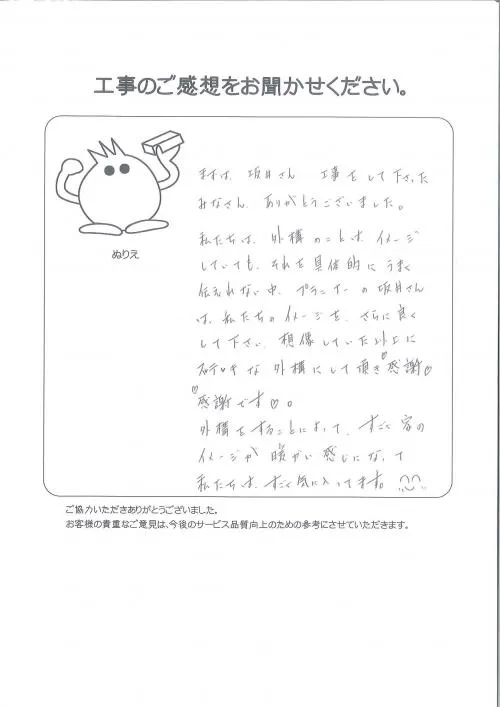 工事のご感想をお聞かせください。
ぬりえ
まずは、坂井さん 工事をして下さった
みなさん、ありがとうございました。
私たちは、外構のことは、イメージ
していても、それを具体的にうまく
伝えれない中、プランナーの坂井さん
は、私たちのイメージを、さらに良く
して下さい、想像していた以上に
ステッキな外構にして頂き感謝♡
感謝です♡。
外構をすることによって、すごく家の
イメージが暖かい感じになって
私たちは、すごく気に入ってます。
ご協力いただきありがとうございました。
お客様の貴重なご意見は、今後のサービス品質向上のための参考にさせていただきます。